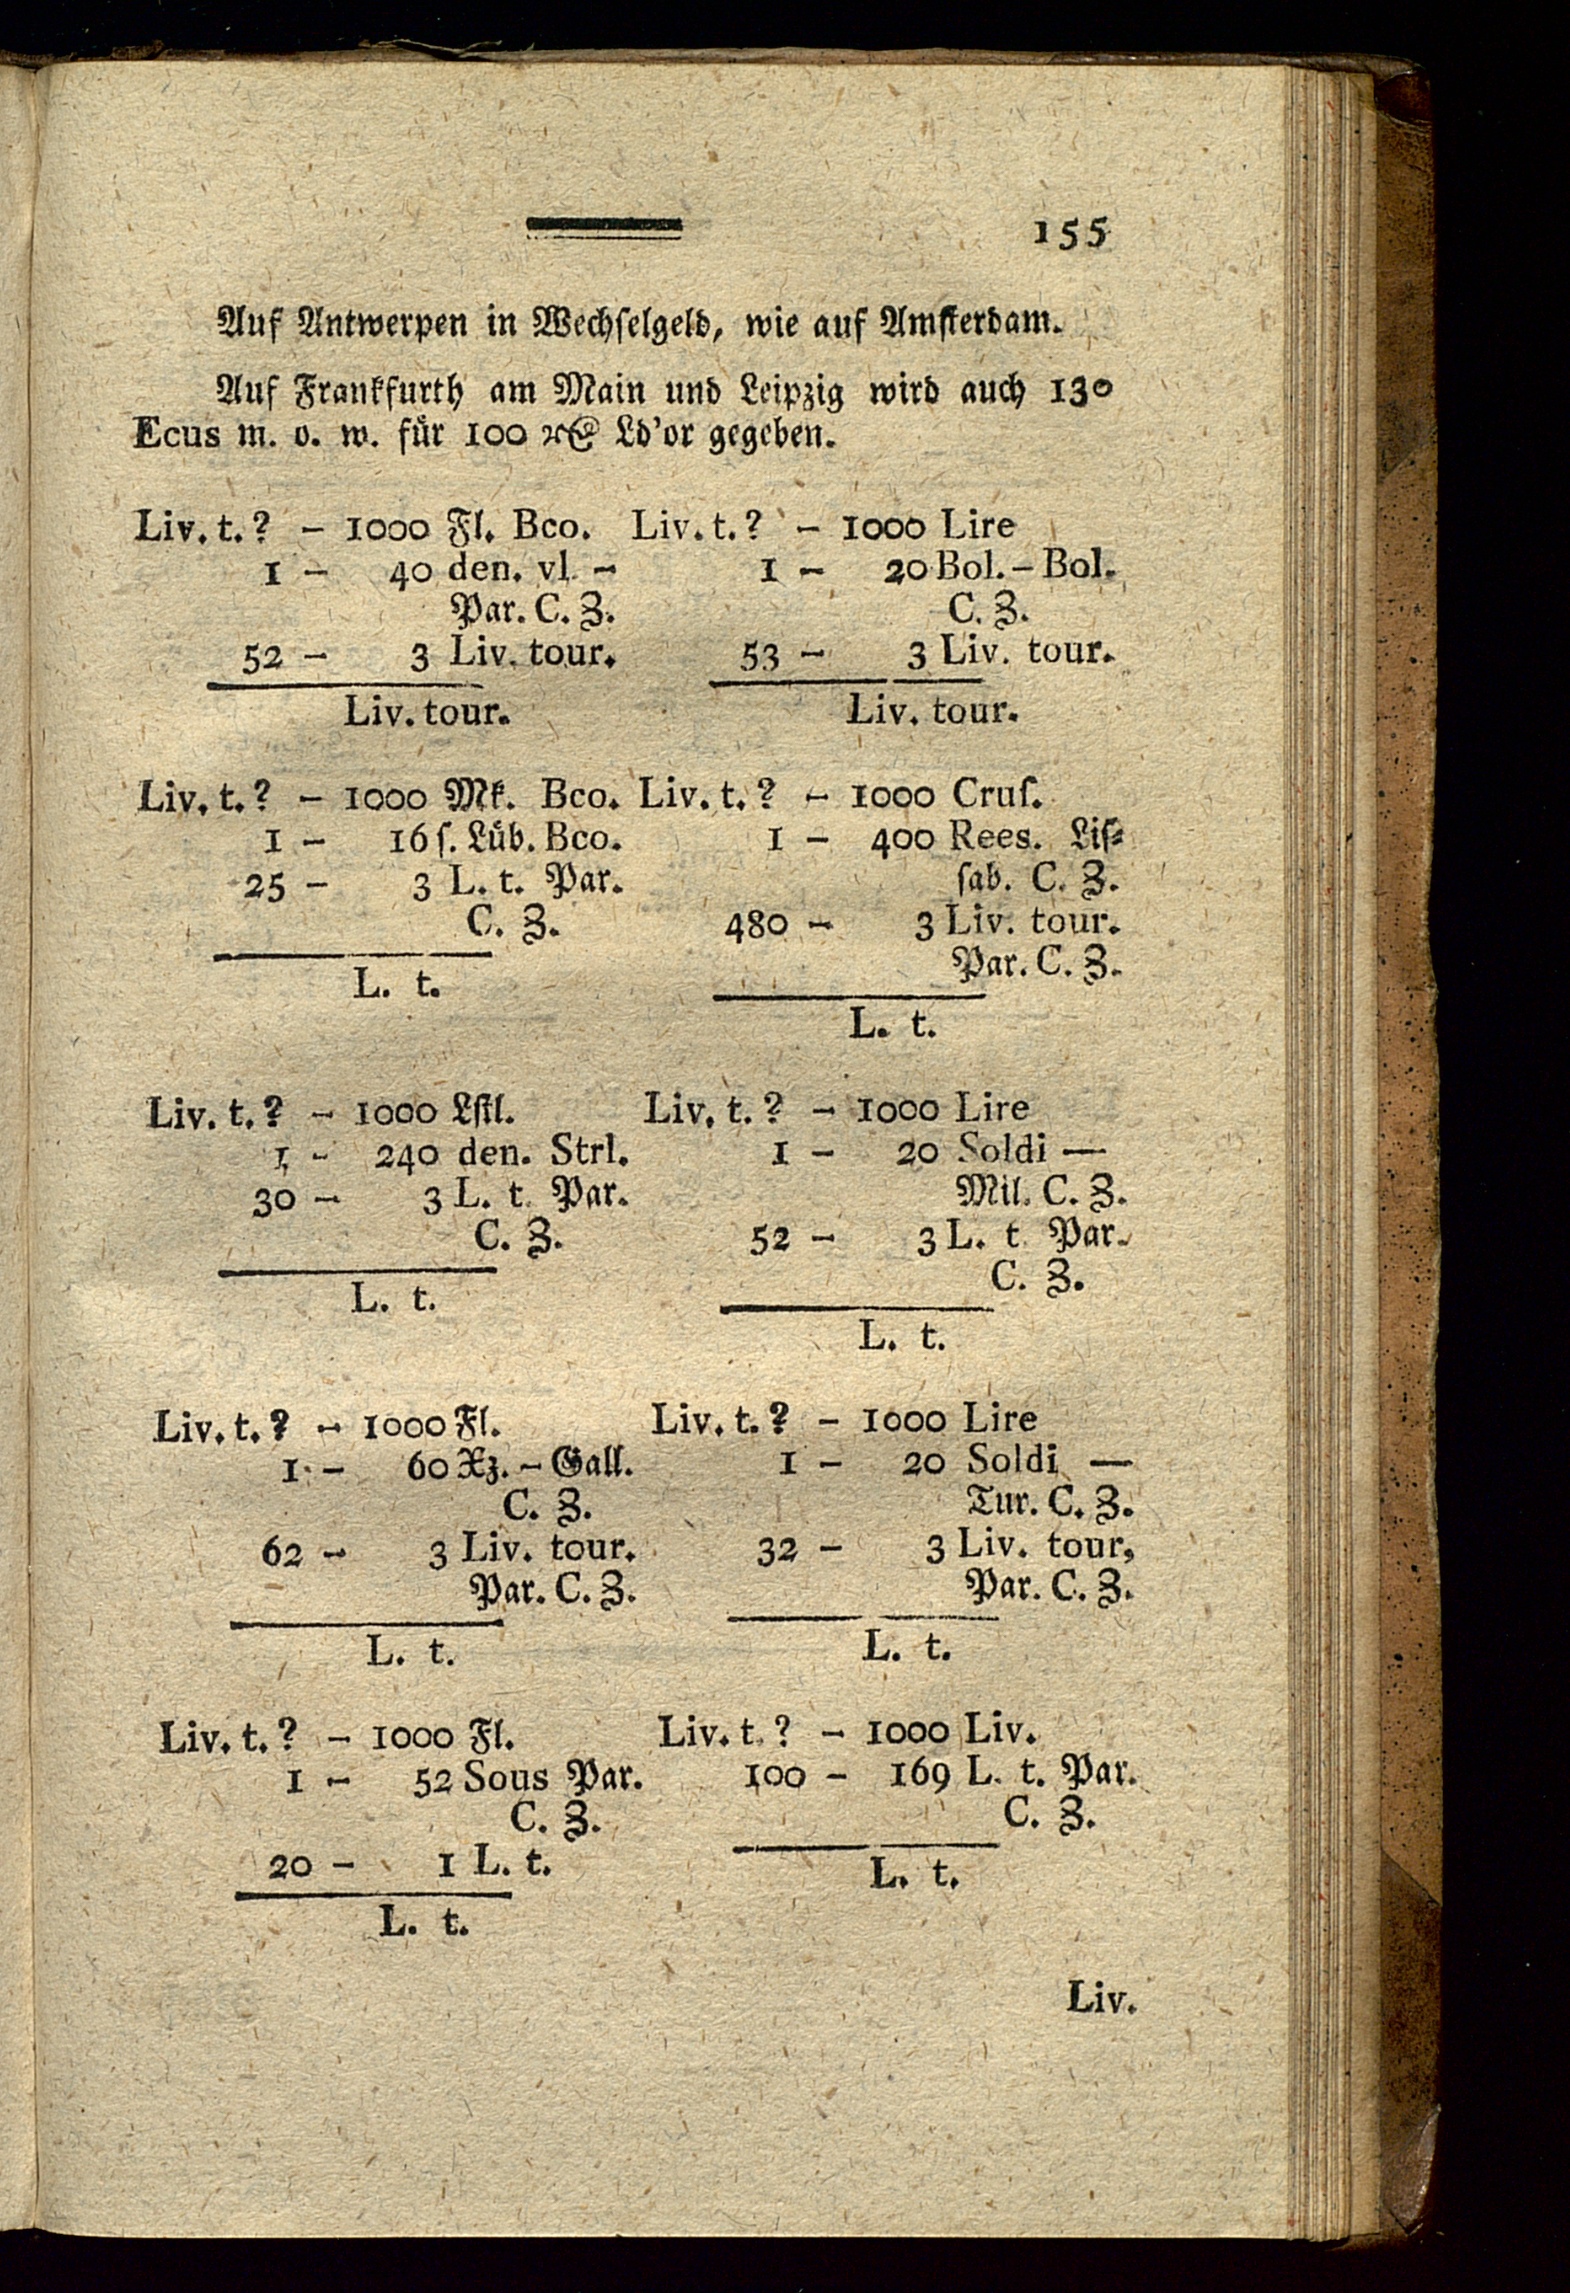 155
Auf Antwerpen in Wechſelgeld, wie auf Amſterdam.
Auf Frankfurth am Main und Leipzig wird auch 130
Ecus m. o. w. für 100 Ld'or gegeben.
Liv. t. ? – 1000 Fl. Bco.
1 – 40 den. vl. –
Par. C. Z.
52 – 3 Liv. tour.
Liv. tour.
Liv. t. ? – 1000 Lire
1 – 20 Bol. – Bol.
C. Z.
53 – 3 Liv. tour.
Liv. tour.
Liv. t. ? – 1000 Mk. Bco.
1 – 16 ſ. Lüb. Bco.
25 – 3 L. t. Par.
C. Z.
L. t.
Liv. t. ? – 1000 Cruſ.
1 – 400 Rees. Liſ⸗
ſab. C. Z.
480 – 3 Liv. tour.
Par. C. Z.
L. t.
Liv. t. ? – 1000 Lſtl.
1 – 240 den. Strl.
30 – 3 L. t. Par.
C. Z.
L. t.
Liv. t. ? – 1000 Lire
1 – 20 Soldi —
Mil. C. Z.
52 – 3 L. t. Par.
C. Z.
L. t.
Liv. t. ? – 1000 Fl.
1 – 60 Xz. – Gall.
C. Z.
62 – 3 Liv. tour.
Par. C. Z.
L. t.
Liv. t. ? – 1000 Lire
1 – 20 Soldi —
Tur. C. Z.
32 – 3 Liv. tour,
Par. C. Z.
L. t.
Liv. t. ? – 1000 Fl.
1 – 52 Sous Par.
C. Z.
20 – 1 L. t.
L. t.
Liv. t. ? – 1000 Liv.
100 – 169 L. t. Par.
C. Z.
L. t.
Liv.